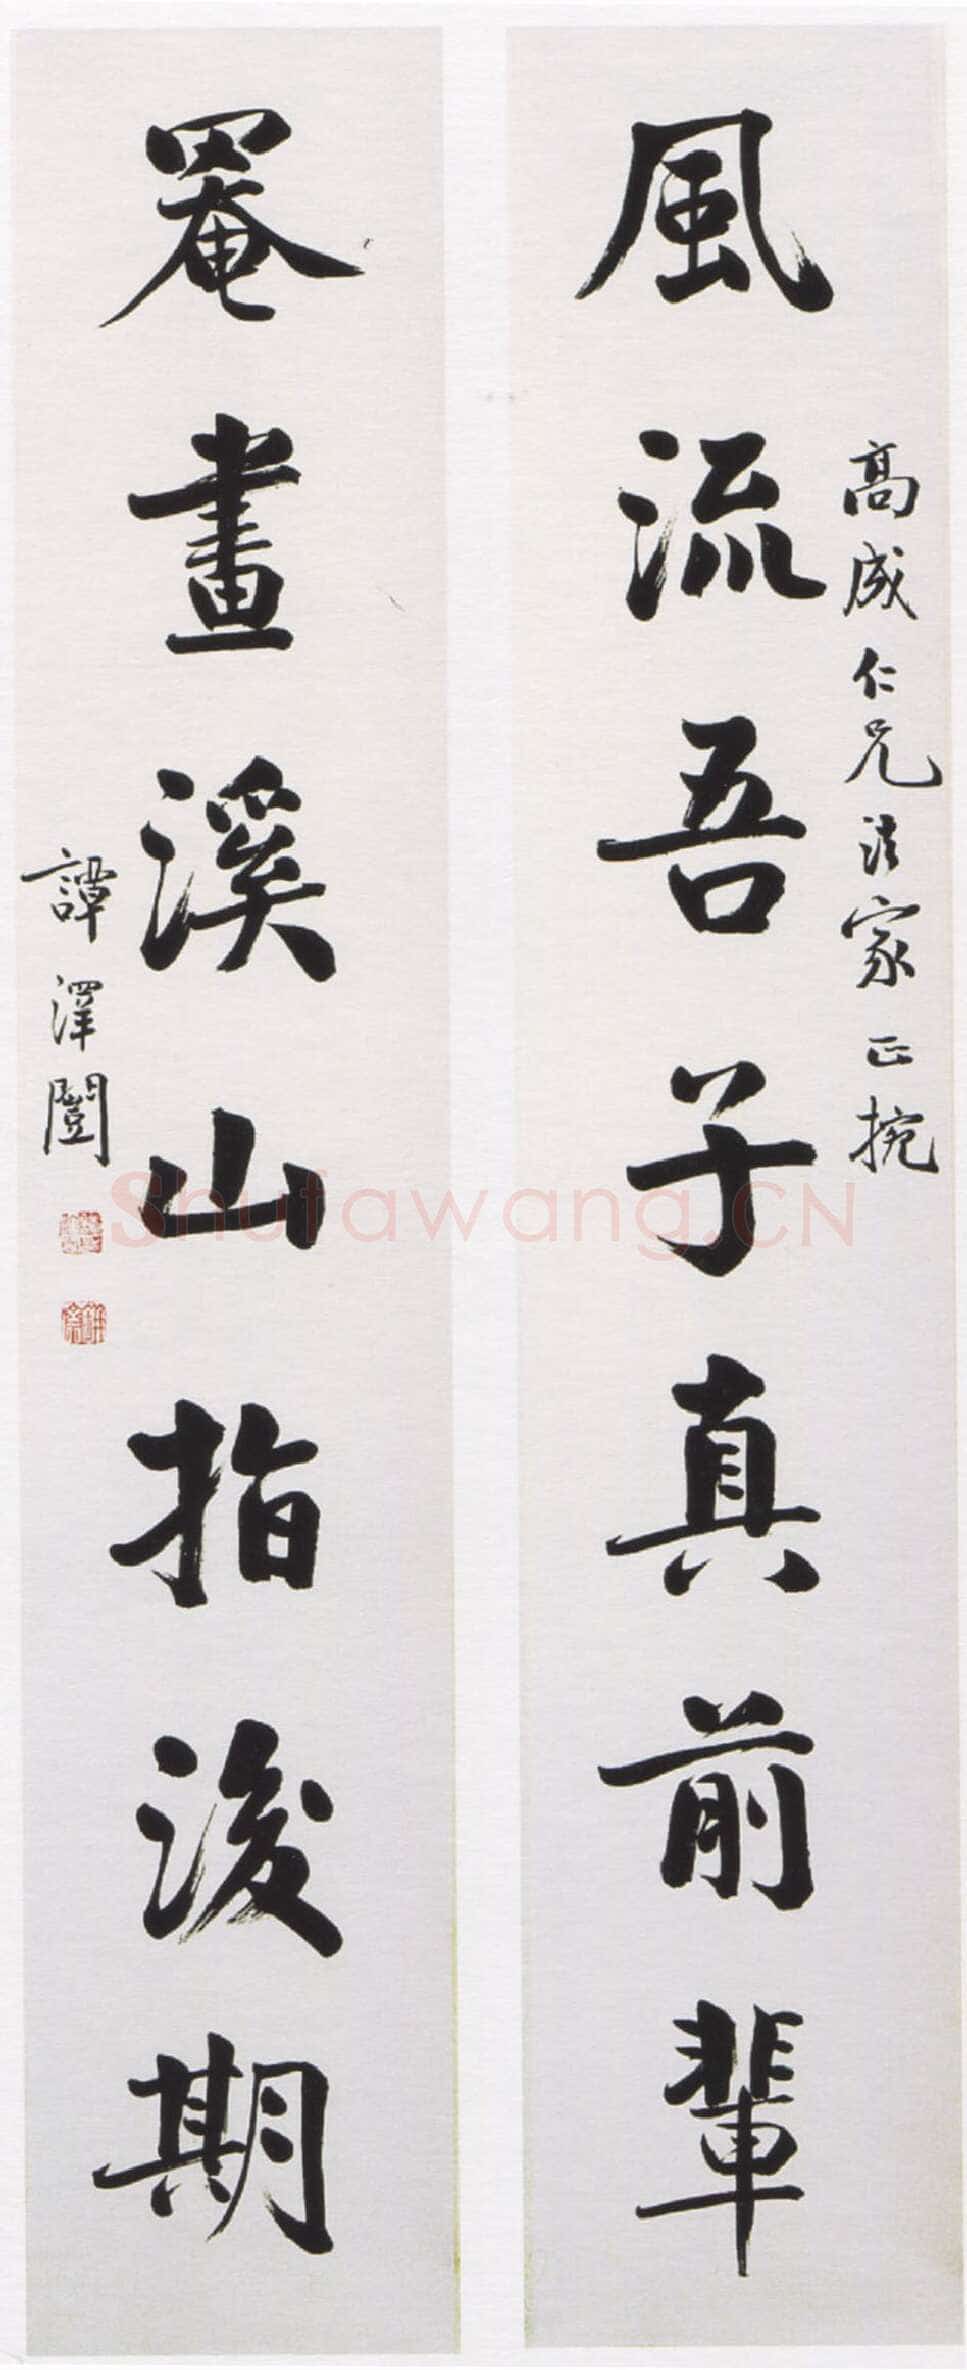 高成仁兄法家正捥
風流吾子真前輩
罨畫溪山指後期
譚澤闓
Shufawang.CN